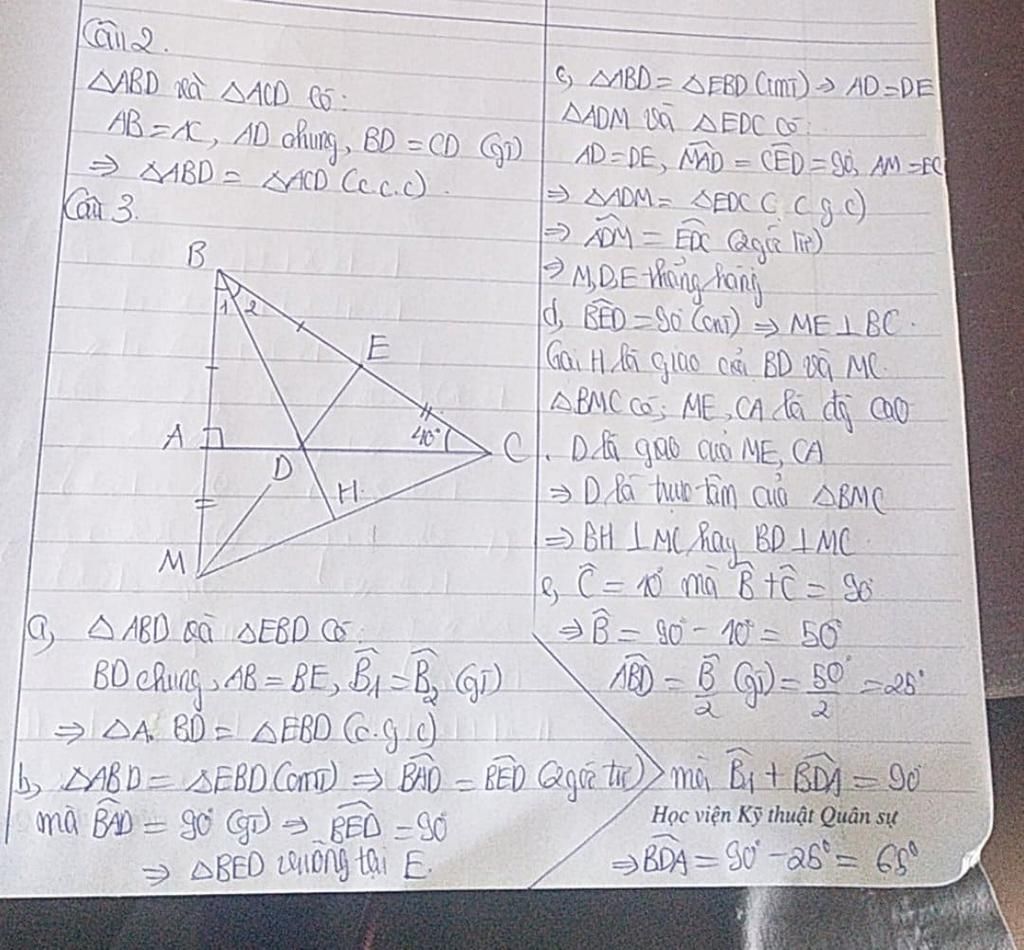 Câu 2.
△ABD và △ACD có:
AB = AC, AD chung, BD = CD (gt)
⇒ △ABD = △ACD (c.c.c).
Câu 3.
B
1 2
E
A
40°
C
D
H
M
a, △ABD và △EBD có:
BD chung, AB = BE, B̂1 = B̂2 (gt)
⇒ △ABD = △EBD (c.g.c)
b, △ABD = △EBD (cmt) ⇒ BAD = BED (2 góc tư)
mà BAD = 90° (gt) ⇒ BED = 90°
⇒ △BED vuông tại E.
c, △ABD = △EBD (cmt) ⇒ AD = DE
△ADM và △EDC có:
AD = DE, MAD = CED = 90°, AM = EC
⇒ △ADM = △EDC (c.g.c)
⇒ ADM = EDC (2 góc tư)
⇒ M, D, E thẳng hàng
d, BED = 90° (cmt) ⇒ ME ⊥ BC.
Gọi H là giao của BD và MC.
△BMC có: ME, CA là độ cao
. D là giao của ME, CA
⇒ D là trực tâm của △BMC
⇒ BH ⊥ MC hay BD ⊥ MC
e, Ĉ = 40° mà B̂ + Ĉ = 90°
⇒ B̂ = 90° - 40° = 50°
ABD = B̂/2 (gt) = 50°/2 = 25°
mà B̂1 + BDA = 90°
Học viện Kỹ thuật Quân sự
⇒ BDA = 90° - 25° = 65°